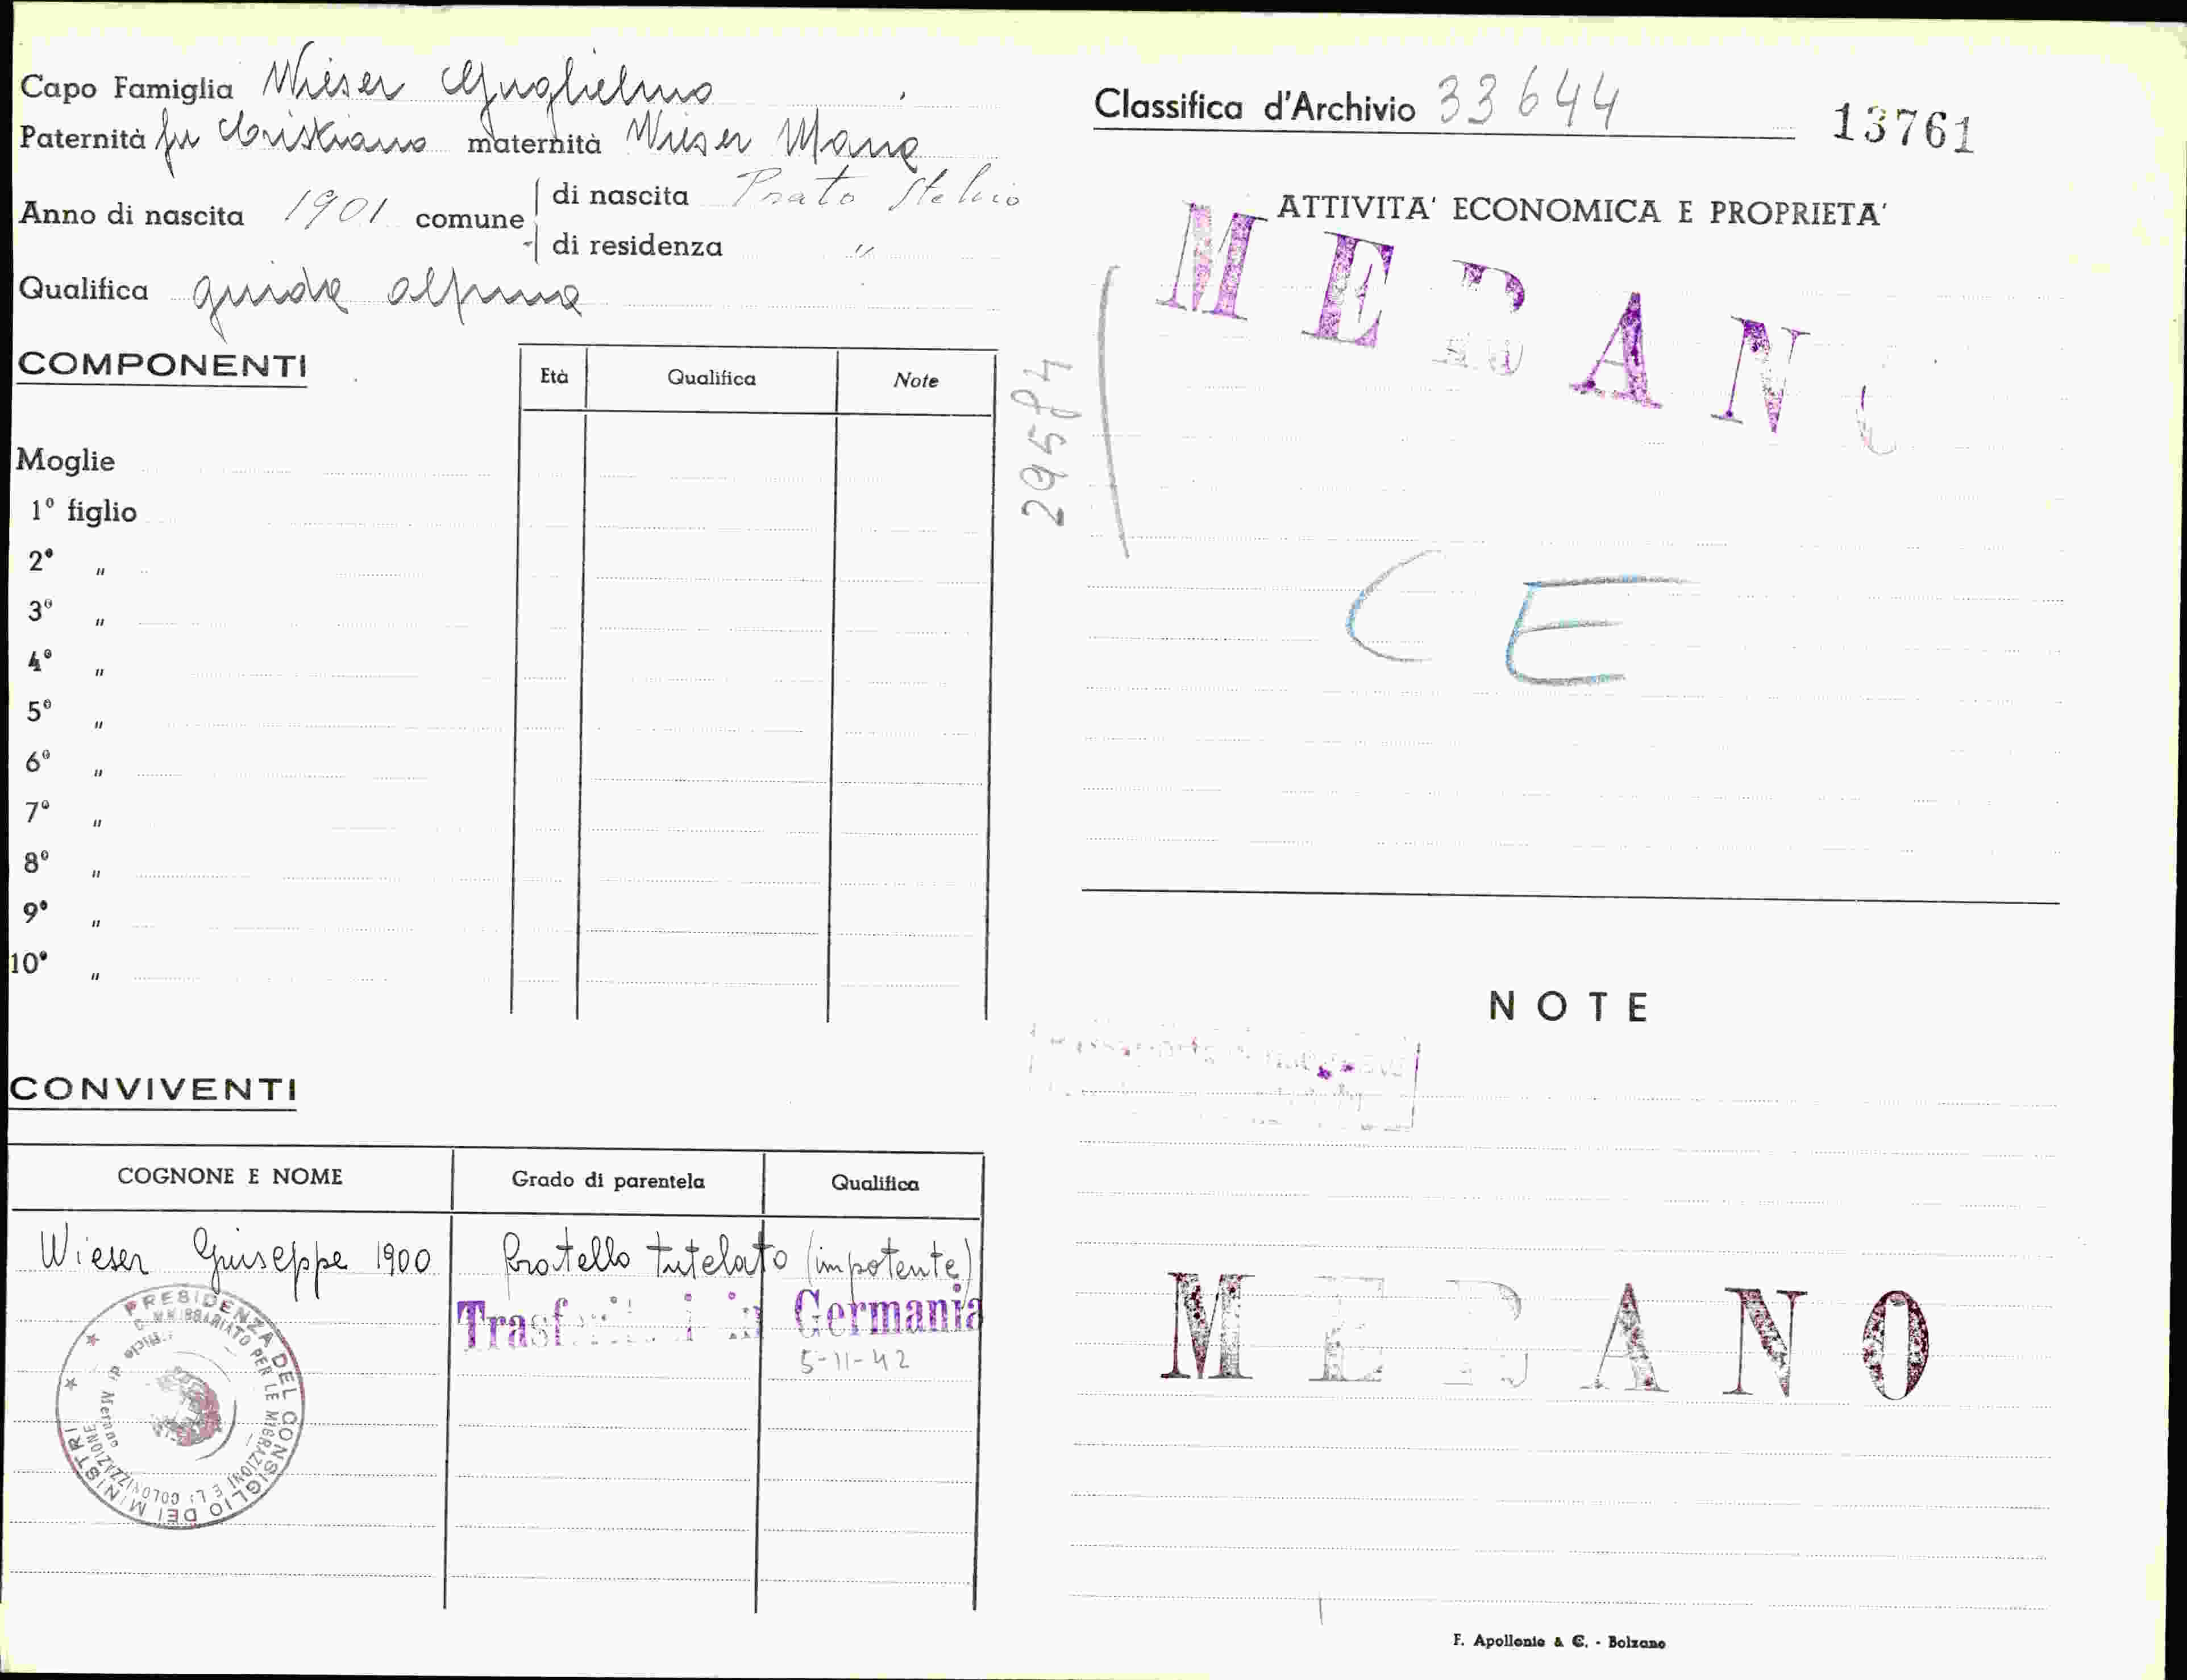 Capo Famiglia Wieser Guglielmo
Paternità fu Cristiano maternità Wieser Maria
Anno di nascita 1901 comune di nascita Prato Stelvio
di residenza "
Qualifica guida alpina
COMPONENTI
Età Qualifica Note
Moglie
1º figlio
2º "
3º "
4º "
5º "
6º "
7º "
8º "
9º "
10º "
CONVIVENTI
COGNONE E NOME Grado di parentela Qualifica
Wieser Giuseppe 1900 fratello tutelato (impotente)
Trasferiti in Germania
5-11-42
PRESIDENZA DEL CONSIGLIO DEI MINISTRI
COMMISSARIATO PER LE MIGRAZIONI E LA COLONIZZAZIONE
Ufficio di Merano
29584
Classifica d'Archivio 33644 13761
ATTIVITA' ECONOMICA E PROPRIETA'
MERANO
CE
NOTE
MERANO
F. Apollonio & C. - Bolzano